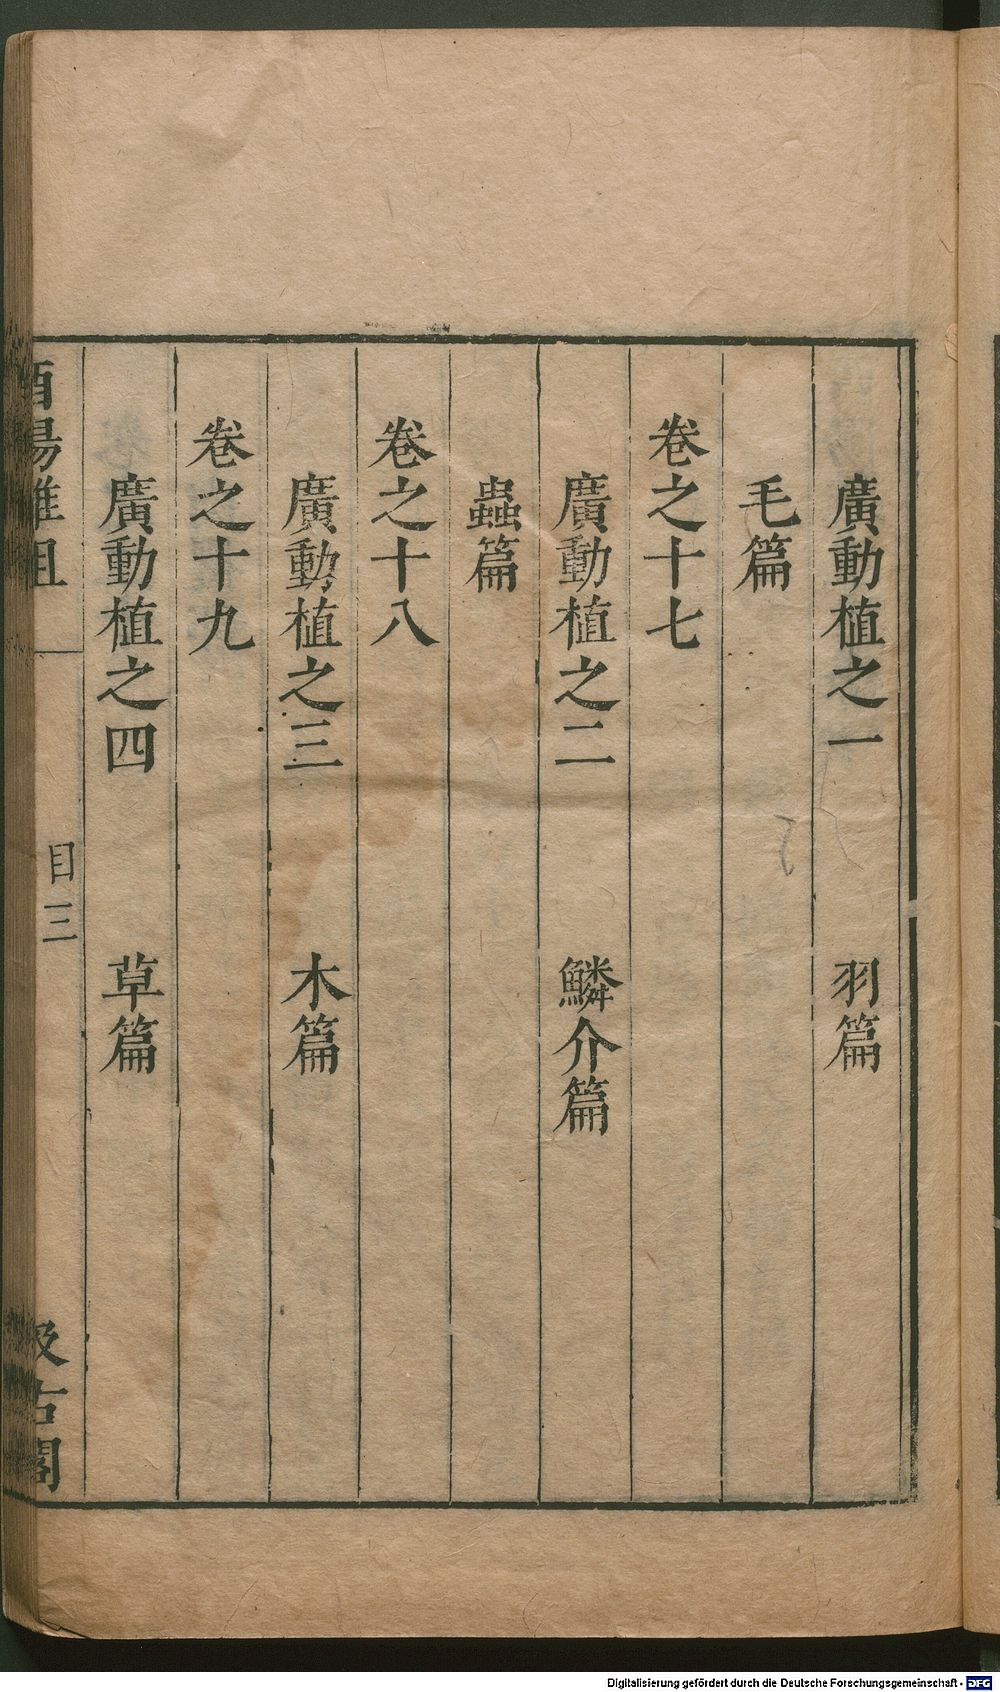 廣動植之一　羽篇
毛篇
卷之十七
廣動植之二　鱗介篇
蟲篇
卷之十八
廣動植之三　木篇
卷之十九
廣動植之四　草篇
酉陽雜俎　目三　汲古閣
Digitalisierung gefördert durch die Deutsche Forschungsgemeinschaft - DFG